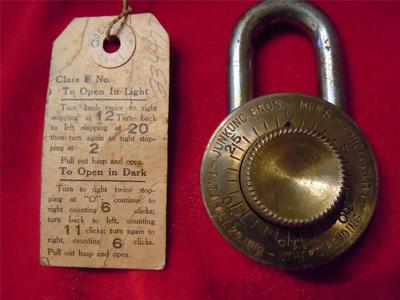 Class F No.
33447
To Open in Light
Turn knob twice to right
stopping at 12 Turn back
to left stopping at 20
then turn again to right stop-
ping at
2
Pull out hasp and open.
To Open in Dark
Turn to right twice stop-
ping at "O"; continue to
right counting 6 clicks;
turn back to left, counting
11 clicks; turn again to
right, counting 6 clicks.
Pull out hasp and open.
JUNKUNC BROS. MFRS. CHICAGO
PAT.
STRENG
PENDING
25
0